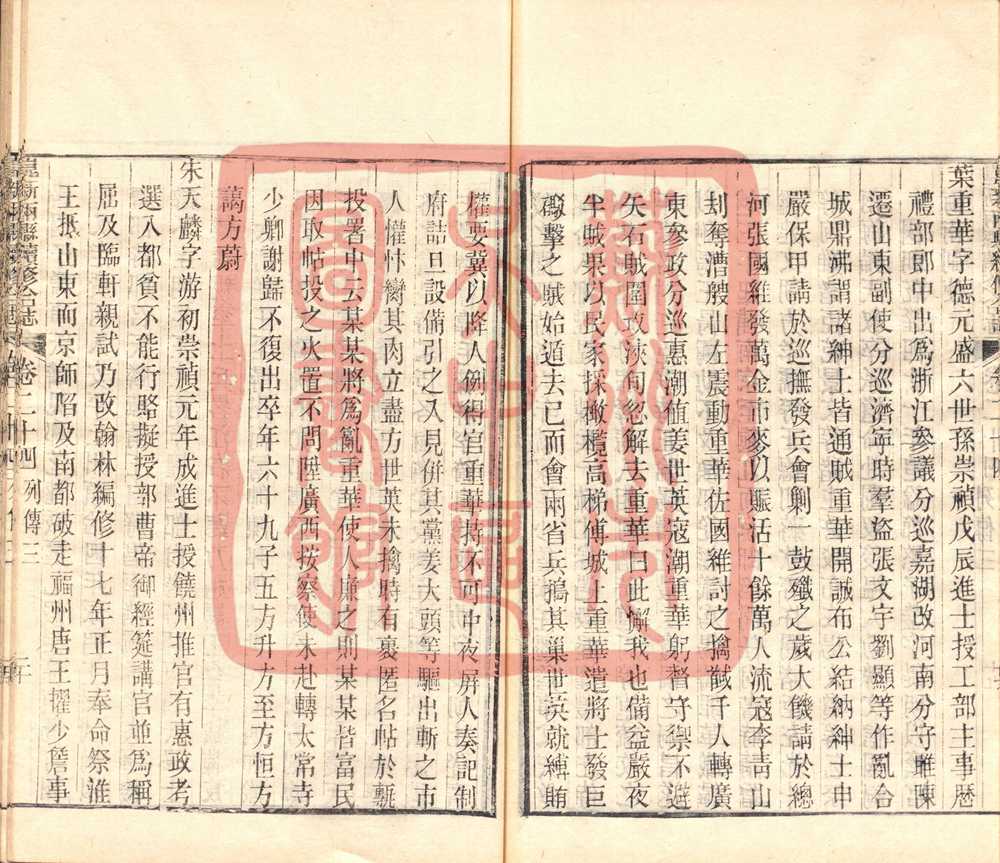 葉重華字德元盛六世孫崇禎戊辰進士授工部主事歷
禮部郎中出爲浙江參議分巡嘉湖改河南分守睢陳
遷山東副使分巡濟寧時羣盜張文宇劉顯等作亂合
城鼎沸謂諸紳士皆通賊重華開誠布公結納紳士申
嚴保甲請於巡撫發兵會剿一鼓殲之歲大饑請於總
河張國維發萬金市麥以賑活十餘萬人流寇李青山
刦奪漕艘山左震動重華佐國維討之擒馘千人轉廣
東參政分巡惠潮值姜世英寇潮重華躬督守禦不避
矢石賊圍攻浹旬忽解去重華曰此懈我也備益嚴夜
半賊果以民家採橄欖高梯傅城上重華遣將士發巨
礮擊之賊始遁去已而會兩省兵搗其巢世英就縛賄
權要冀以降人例得官重華持不可中夜屏人奏記制
府詰旦設備引之入見併其黨姜大頭等驅出斬之市
人懽忭臠其肉立盡方世英未擒時有裹匿名帖於甎
投署中云某某將爲亂重華使人廉之則某某皆富民
因取帖投之火置不問陞廣西按察使未赴轉太常寺
少卿謝歸不復出卒年六十九子五方升方至方恒方
藹方蔚
朱天麟字游初崇禎元年成進士授饒州推官有惠政考
選入都貧不能行賂擬授部曹帝御經筵講官並爲稱
屈及臨軒親試乃改翰林編修十七年正月奉命祭淮
王抵山東而京師陷及南都破走福州唐王擢少詹事
崑新兩縣續修合志 卷二十四 列傳三